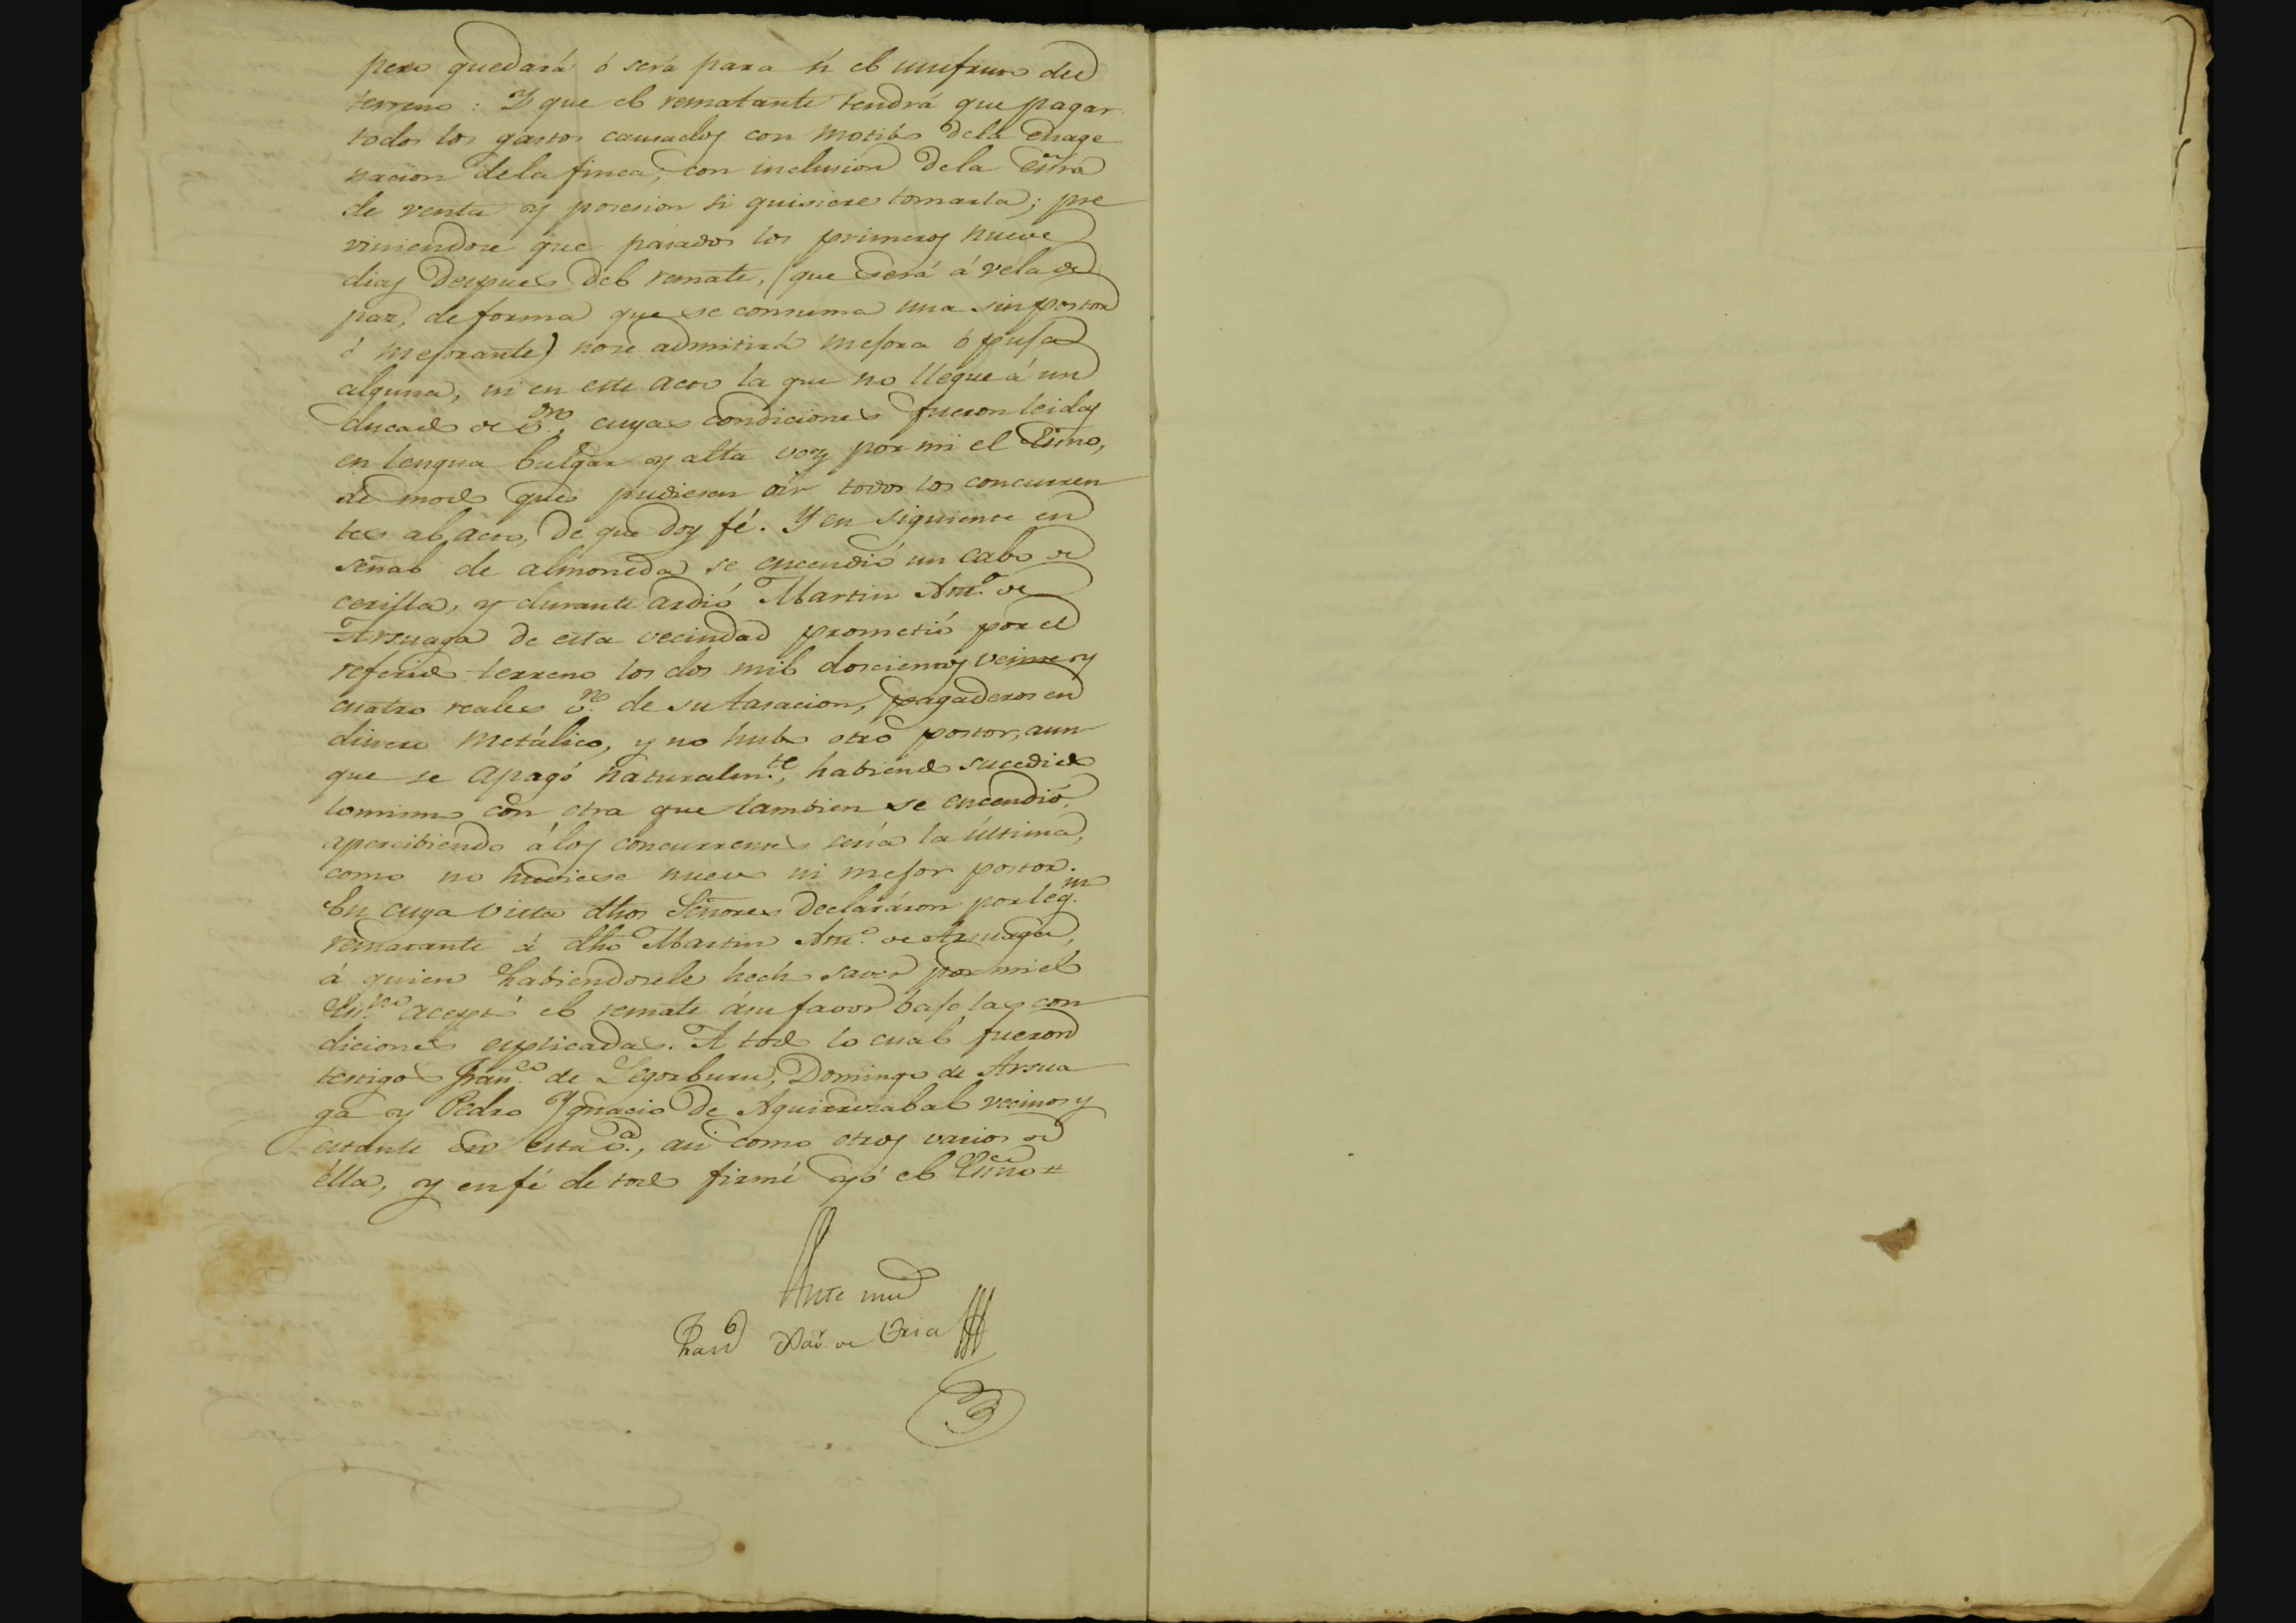 pero quedará ó será para si el usufruto del
terreno: Y que el rematante tendrá que pagar
todos los gastos causados con motibo dela enage
nacion dela finca, con inclusion dela Essra
de venta y posesion si quisiere tomarla; pre
viniendose que pasados los primeros nueve
dias despues del remate, (que será á vela de
paz, de forma que se consuma una sin postor
ó mejorante) nose admitirá mejora ó puja
alguna, ni en este acto la que no llegue á un
ducado de v.on, cuyas condiciones fueron leidas
en lengua bulgar y alta voz por mi el Essno,
de modo que pudiesen oir todos los concurren
tes al acto, de que doy fé. Y en siguiente en
señal de almoneda se encendió un cabo de
cerilla, y durante ardió Martin Ant.o de
Arsuaga de esta vecindad prometió por el
referido terreno los dos mil doscientos veinte y
cuatro reales v.n de su tasacion, pagaderos en
dinero metálico, y no hubo otro postor, aun
que se apagó naturalm.te, habiendo sucedido
lomismo con otra que tambien se encendió,
apercibiendo á los concurrentes sería la última,
como no hubiese nuevo ni mejor postor.
En cuya vista dhos Señores declaráron por leg.mo
rematante á dho Martin Ant.o de Arsuaga,
á quien habiendosele hecho saver por mi el
Ess.no aceptó el remate ásu favor bajo las con
diciones esplicadas. A todo lo cual fueron
testigos Fran.co de Legorburu, Domingo de Arsua
ga y Pedro Ygnacio de Aguirrezabal vecinos y
estante en esta v.a, asi como otros varios de
élla, y en fé de todo firmé yó el Essno =
Ante mi
Fran.co Xav. de Oria